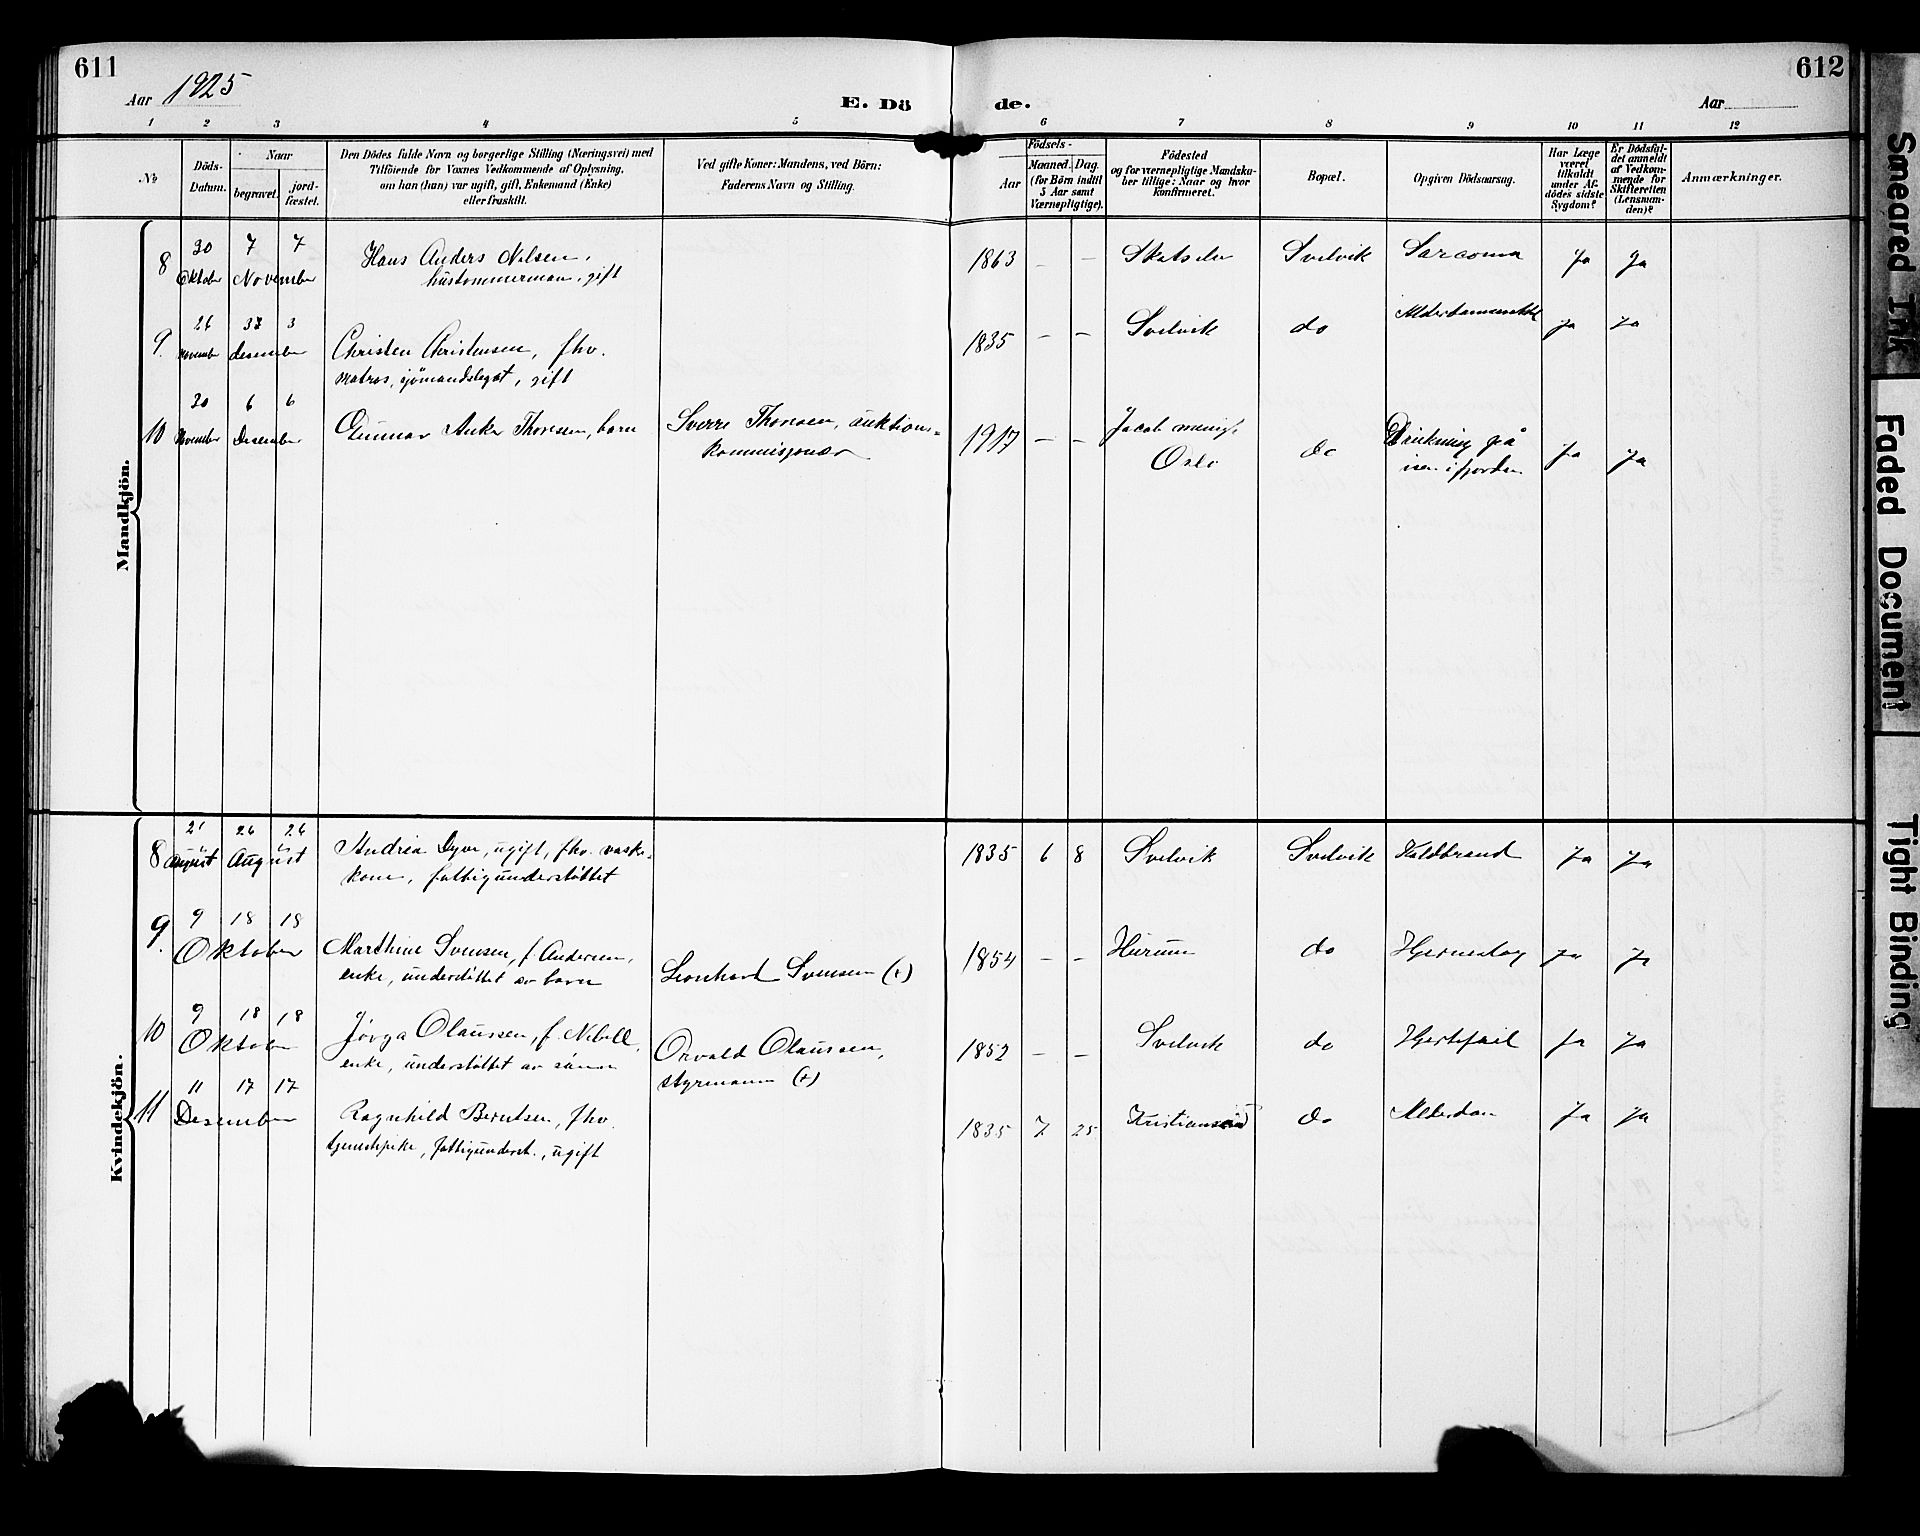 611
612
Aar 1925
E. Dö
de.
Aar
1 2 3 4 5 6 7 8 9 10 11 12
No
Döds-
Datum.
Naar
begravet.
jord-
fæstet.
Den Dödes fulde Navn og borgerlige Stilling (Næringsvei) med
Tilföiende for Voxnes Vedkommende af Oplysning,
om han (hun) var ugift, gift, Enkemand (Enke)
eller fraskilt.
Ved gifte Koner: Mandens, ved Börn:
Faderens Navn og Stilling.
Födsels-
Aar
Maaned. Dag.
(for Börn indtil
5 Aar samt
Værnepligtige).
Födested
og for værnepligtige Mandska-
ber tillige: Naar og hvor
konfirmeret.
Bopæl.
Opgiven Dödsaarsag.
Har Læge
været
tilkaldt
under Af-
dödes sidste
Sygdom?
Er Dödsfal-
det anmeldt
af Vedkom-
mende for
Skifteretten
(Lensman-
den)?
Anmærkninger.
Mandkjön.
8 30 Oktober 7 7 November
Hans Anders Nilsen,
hustømmermann, gift
1863 – – Skotselv Svelvik Sarcoma Ja Ja
9. 26 November 3 desember
Christen Christensen, fhv.
matros, sjömandslegat, gift
1835 – – Svelvik do Ja Ja
10 30 November 6 6 Desember
Gunnar Anker Thoresen, barn
Sverre Thoresen, auktions-
kommisjonær
1917 – –
Jacob menigh.
Oslo
do
Drukning på
isen i fjorden
Ja Ja
Kvindekjön.
8 21 august 26 26 August
Andrea Dyve, ugift, fhv. vaske-
kone, fattigunderstöttet
1835 6 8 Svelvik Svelvik Koldbrand Ja Ja
9. 9 18 18 Oktober
Marthine Svensen, f. Andersen,
enke, understöttet av barn
Leonhard Svensen (+)
1854 – – Hurum do Hjerneslag Ja Ja
10 9 18 18 Oktober
Olaussen, f.
enke, understöttet av sönn
Osvald Olaussen,
styrmann (+)
1852 – – Svelvik do Hjertefeil Ja Ja
11 11 17 17 Desember
Ragnhild Berntsen, fhv.
tjenestepike, fattigunderst., ugift
1835 7 25 Kristiansand do Alderdom Ja Ja
Smeared Ink
Faded Document
Tight Binding